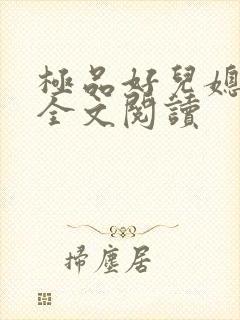 極品好兒媳
全文閱讀
掃塵居